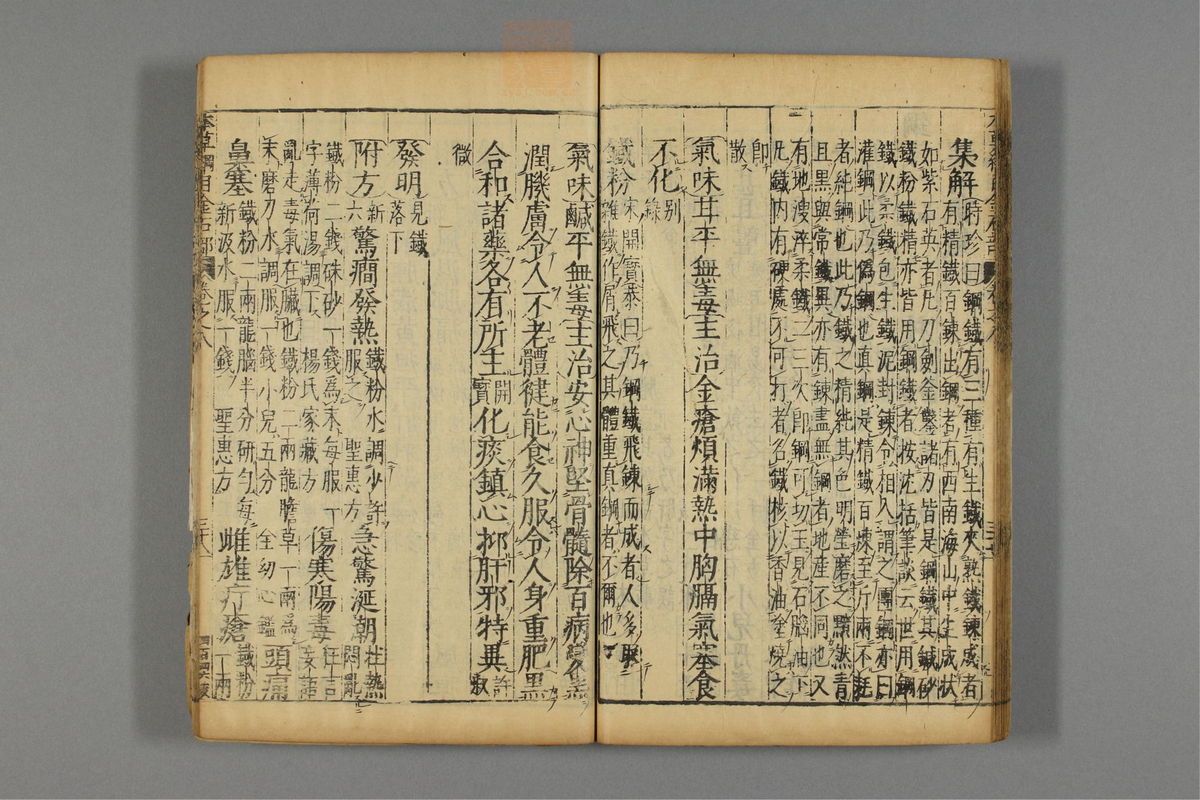 集解時珍曰鋼鐵有三種有生鐵夾熟鐵鍊成者
有精鐵百鍊出鋼者有西南海山中生成狀
如紫石英者凡刀劍斧鑿諸刃皆是鋼鐵其鍼砂
鐵粉鐵精亦皆用鋼鐵者按沈括筆談云世用鋼
鐵以柔鐵包生鐵泥封鍊令相入謂之團鋼亦曰
灌鋼此乃僞鋼也真鋼是精鐵百鍊至斤兩不耗
者純鋼也此乃鐵之精純其色明瑩磨之黯然青
且黑與常鐵異亦有鍊盡無鋼者地產不同也又
有地溲淬柔鐵二三次即鋼可切玉見石腦油下
凡鐵內有硬處不可打者名鐵核以香油塗燒之
即散
氣味甘平無毒主治金瘡煩滿熱中胸膈氣塞食
不化別錄
鐵粉宋開寶恭曰乃鋼鐵飛鍊而成者人多取
雜鐵作屑飛之其體重真鋼者不爾也
氣味鹹平無毒主治安心神堅骨髓除百病變黑
潤肌膚令人不老體健能食久服令人身重肥黑
合和諸藥各有所主開寶化痰鎮心抑肝邪特異許叔
微
發明見鐵落下
附方新六驚癇發熱鐵粉水調少許服之聖惠方急驚涎潮壯熱悶亂
鐵粉二錢硃砂一錢為末每服一
字薄荷湯調下楊氏家藏方傷寒陽毒狂言妄語
亂走毒氣在臟也鐵粉二兩龍膽草一兩為
末磨刀水調服一錢小兒五分全幼心鑑頭痛
鼻塞鐵粉二兩龍腦半分研勻每
新汲水服一錢聖惠方雌雄疔瘡鐵粉一兩